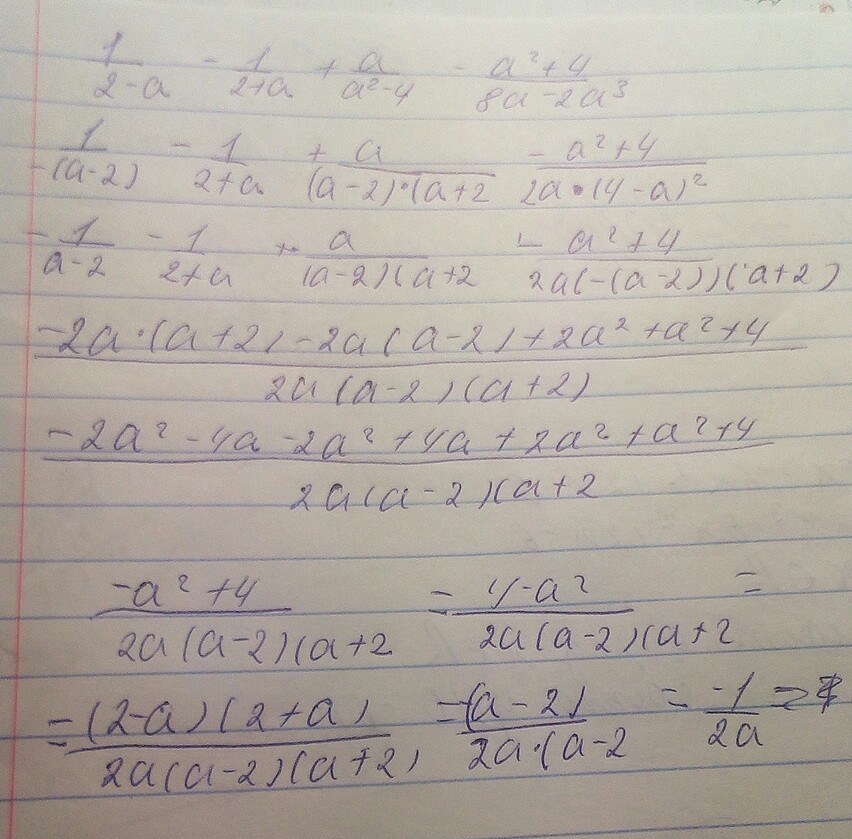 1/(2-a) - 1/(2+a) + a/(a²-4) - (a²+4)/(8a-2a³)
1/(-(a-2)) - 1/(2+a) + a/((a-2)·(a+2) - (a²+4)/(2a·(4-a)²)
- 1/(a-2) - 1/(2+a) + a/((a-2)(a+2) - (a²+4)/(2a(-(a-2))(a+2))
(-2a·(a+2)-2a(a-2)+2a²+a²+4)/(2a(a-2)(a+2))
(-2a²-4a-2a²+4a+2a²+a²+4)/(2a(a-2)(a+2)
(-a²+4)/(2a(a-2)(a+2) = (4-a²)/(2a(a-2)(a+2) =
= ((2-a)(2+a))/(2a(a-2)(a+2)) = (-(a-2))/(2a·(a-2) = (-1)/(2a) =